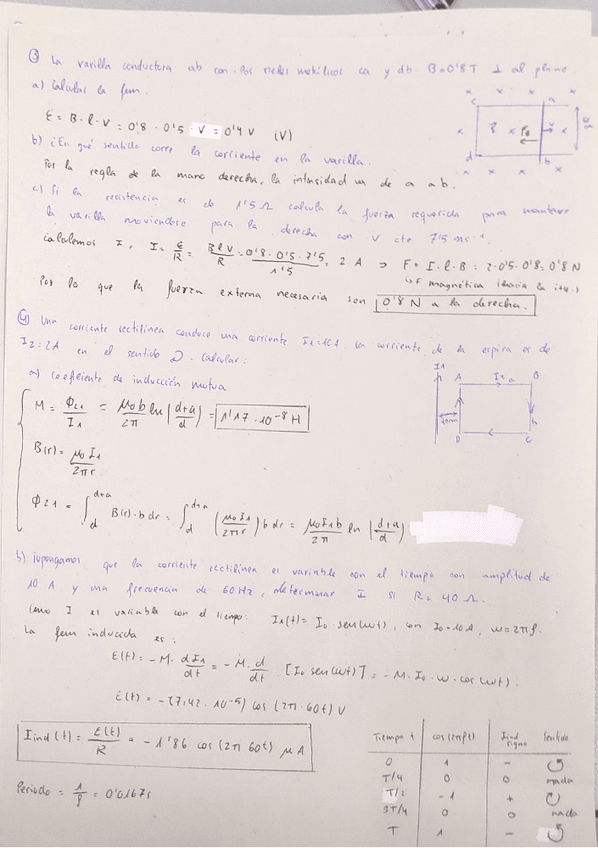 ③ La varilla conductora ab con los rieles metálicos ca y db. B=0'8 T ⊥ al plano.
a) Calcular la fem.
ε = B·l·V = 0'8 · 0'5 · V = 0'4 V (V)
b) ¿En qué sentido corre la corriente en la varilla.
Por la regla de la mano derecha, la intensidad va de a a b.
c) Si la resistencia es de 1'5 Ω calcula la fuerza requerida para mantener
la varilla moviendose para la derecha con v cte 7'5 ms⁻¹.
Calculemos I, I = ε/R = BlV/R = 0'8·0'5·7'5/1'5 = 2 A ⇒ F = I·l·B = 2·0'5·0'8 = 0'8 N
↳ F magnética (hacia la izq.)
Por lo que la fuerza externa necesaria son 0'8 N a la derecha.
c a
v
d b
④ Una corriente rectilínea conduce una corriente I₁=10A. La corriente de la espira es de
I₂=2A en el sentido ↻. Calcular:
a) coeficiente de inducción mutua
M = Φ₂₁/I₁ = μ₀b/2π ln(d+a/d) = 1'17·10⁻⁸ H
B(r) = μ₀I₁/2πr
Φ₂₁ = ∫_d^{d+a} B(r)·b dr = ∫_d^{d+a} (μ₀I₁/2πr) b dr = μ₀I₁b/2π ln(d+a/d)
I₁ A I₂ a B
b
D C
b) supongamos que la corriente rectilínea es variable con el tiempo con amplitud de
10 A y una frecuencia de 60Hz, determinar I si R=40 Ω.
Como I es variable con el tiempo: I₁(t) = I₀ sen(ωt), con I₀=10A, ω=2πf.
La fem inducida es:
ε(t) = -M· dI₁/dt = -M· d/dt [I₀ sen(ωt)] = -M·I₀·ω·cos(ωt).
ε(t) = -(7,42·10⁻⁵) cos(2π·60t) V
I ind(t) = ε(t)/R = -1'86 cos(2π 60t) μA
Periodo = 1/f = 0'0167s
Tiempo t cos(2πft) Iind signo Sentido
0 1 - ↺
T/4 0 0 nada
T/2 -1 + ↻
3T/4 0 0 nada
T 1 - ↺